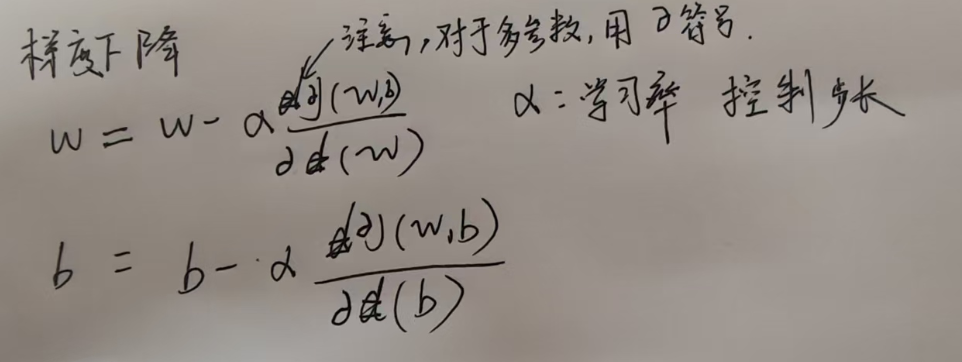 梯度下降
注意,对于多参数,用 ∂ 符号.
w = w - α ∂J(w,b) / ∂(w)
α:学习率 控制步长
b = b - α ∂J(w,b) / ∂(b)